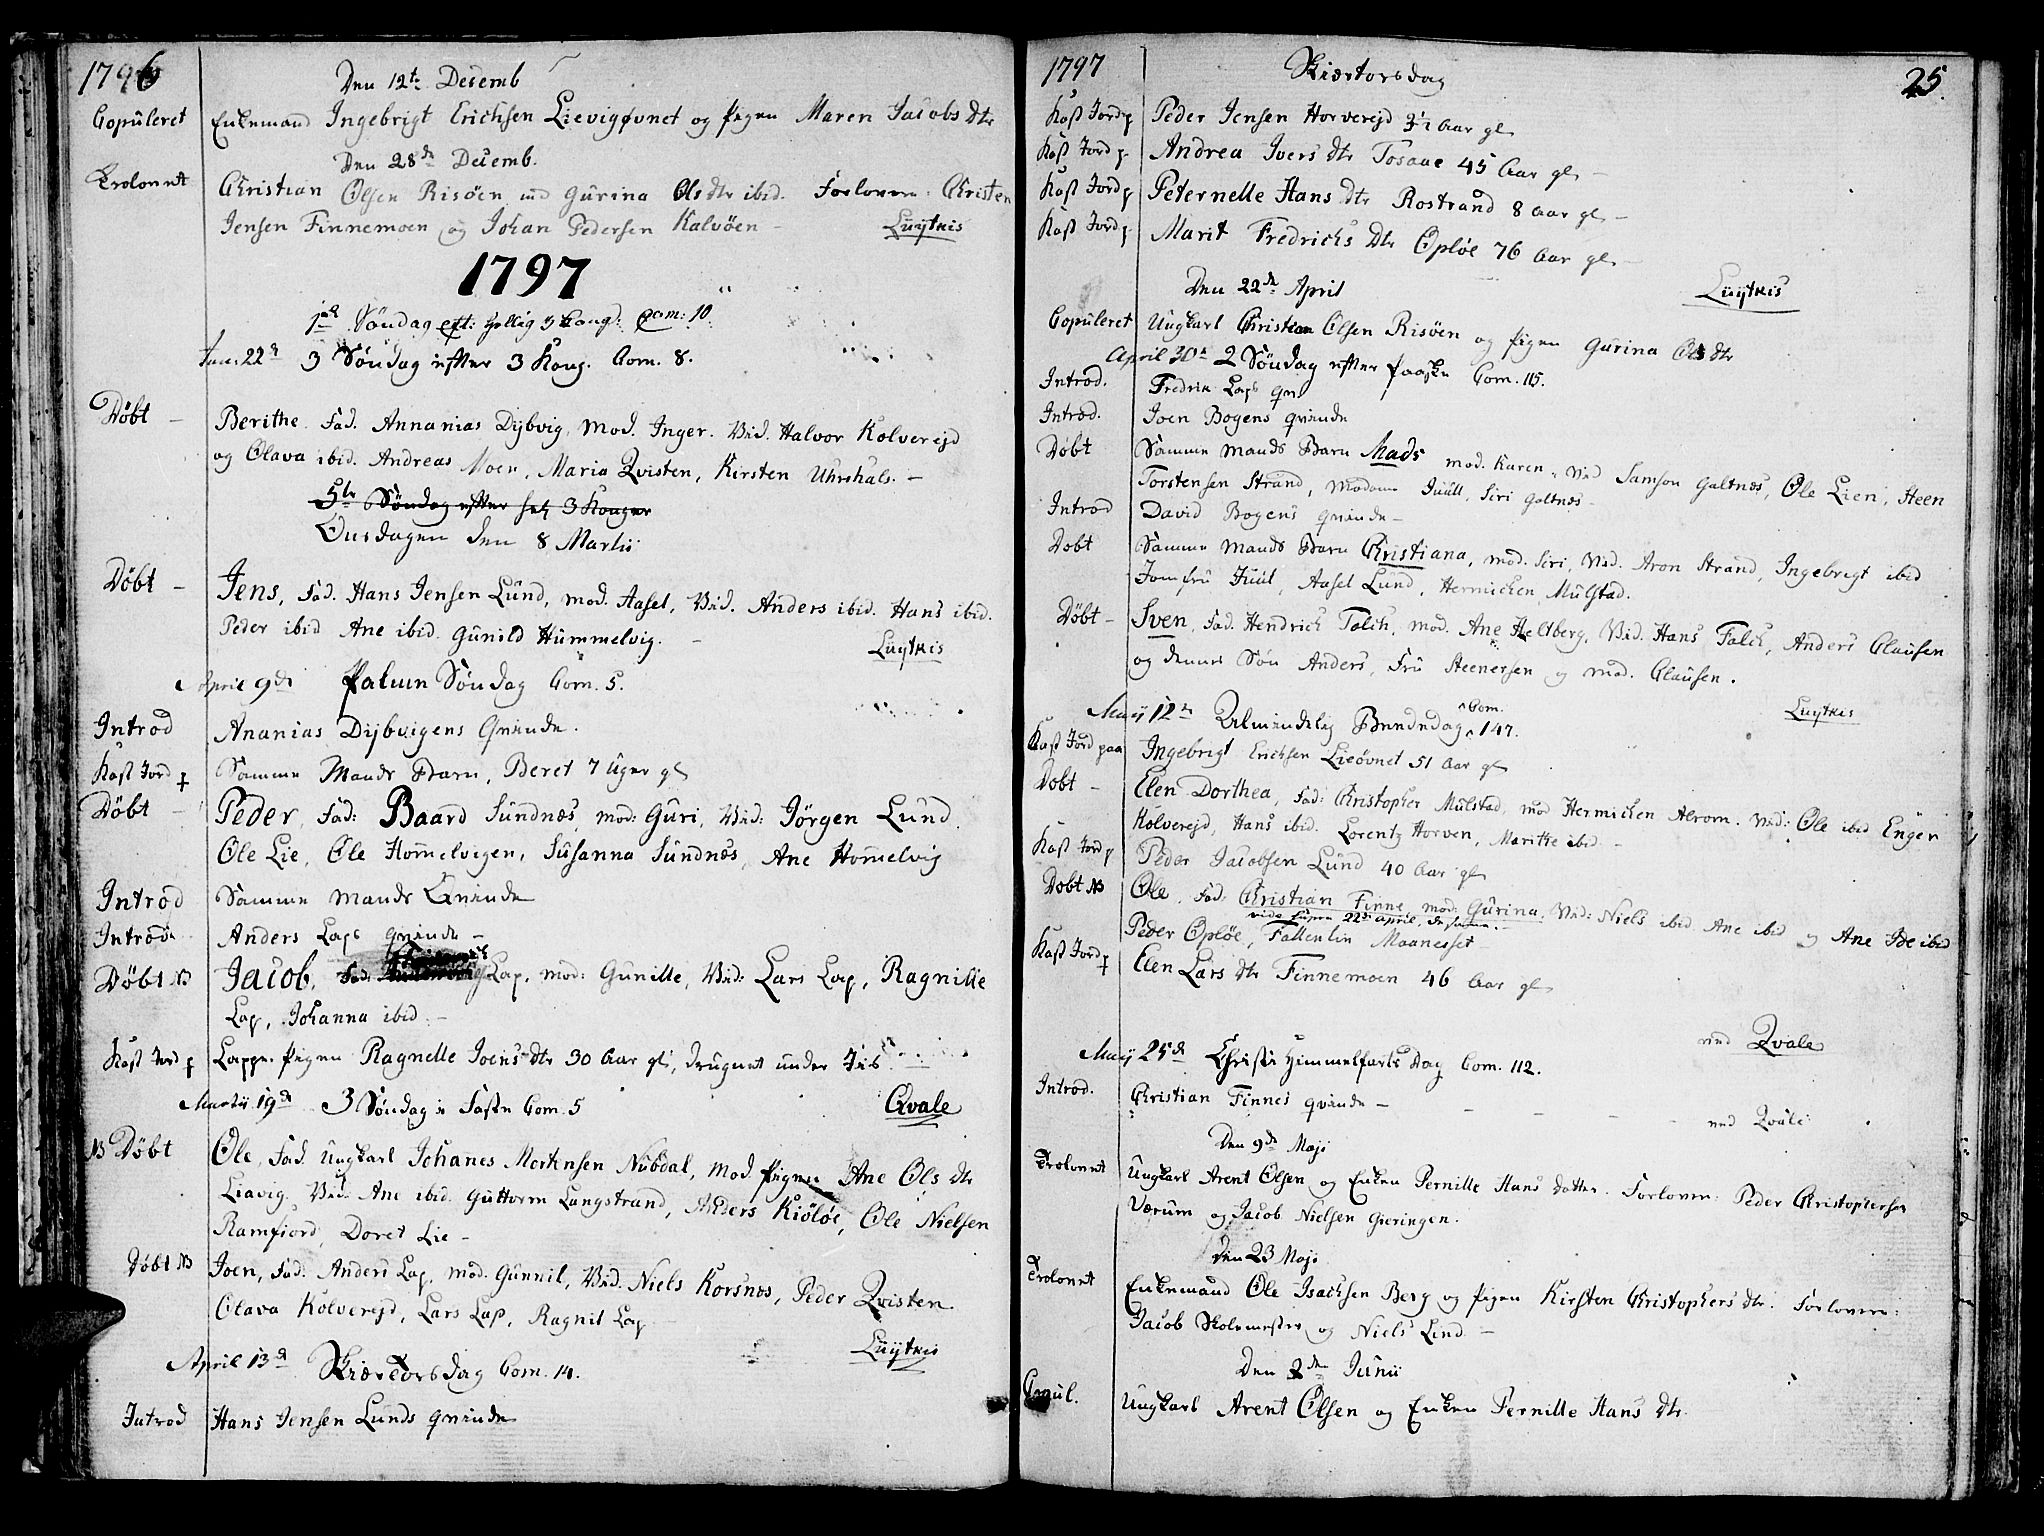 1796
Den 12te Desemb
Copuleret Enkemand Ingebrigt Erichsen Lievigövnet og Pigen Maren Jacobs Dtr
Den 28de Decemb.
Trolovet Christian Olsen Risöen med Gurina Olsdtr ibid. Forlover: Christen
Jensen Finnemoen og Johan Pedersen Kalvöen - Luytkis
1797
1ste Söndag eft: Hellig 3 Kong: Com: 10
Jan: 22de 3 Söndag efter 3 Kong. Com. 8.
Döbt - Berithe. Fad. Annanias Dÿbvig, Mod. Inger. Vid. Halvor Kolvereid
og Olava ibid. Andreas Moen, Maria Qvisten, Kirsten Uhrshals. -
5te Söndag efter Hel 3 Konger
Onsdagen den 8 Martii
Döbt - Jens, Fad. Hans Jensen Lund, mod. Aasel, Vid. Anders ibid. Hans ibid.
Peder ibid Ane ibid. Gunild Hummelvig. - Luytkis
April 9de Palum Söndag Com. 5.
Introd Ananias Dÿbvigens Qvinde.
Kast Jord p Samme Mands Barn, Beret 7 Uger gl
Döbt - Peder, Fad: Baard Sundnæs, mod: Guri, Vid: Jörgen Lund
Ole Lie, Ole Homelvigen, Susanna Sundnæs, Ane Homelvig
Introd Samme Mands Qvinde
Introd. Anders Laps Qvinde -
Döbt NB Jacob, Fad: Lap, mod: Gunille, Vid: Lars Lap, Ragnille
Lap, Johanna ibid. -
Kast Jord p Lappe Pigen Ragnelle Joensdtr 30 Aar gl, druknet under Iis.
Martii 19de 3 Söndag i Faste Com. 5 Qvale
NB Döbt Ole, Fad. Ungkarl Johanes Mortensen Nubdal, Mod Pigen Ane Ols dtr
Liavig. Vid. Ane ibid. Guttorm Langstrand, Anders Kiölöe, Ole Nielsen
Ramfiord, Doret Lie -
Döbt NB Joen, Fad. Anders Lap, mod. Gunnil, Vid. Niels Korsnæs, Peder Qvisten
Olava Kolvereid, Lars Lap, Ragnil Lap
April 13de Skiærtorsdag Com. 14. Luytkis
Introd Hans Jensen Lunds Qvinde
1797 Skiærtorsdag 25.
Kast Jord p Peder Jensen Horvereid 3½ Aar gl
Kast Jord p. Andrea Ivers dtr Tosaae 45 Aar gl -
Kast Jord p Peternelle Hans dtr Rostrand 8 Aar gl -
Kast Jord p Marit Fredrichs Dtr Oplöe 76 Aar gl -
Den 22de April Luytkis
Copuleret Ungkarl Christian Olsen Risöen og Pigen Gurina Ols dtr
April 30te 2 Söndag efter Paaske Com. 115.
Introd. Fredrik Laps Qv.
Introd. Joen Bogens Qvinde
Döbt Samme Mands Barn Mads mod. Karen, Vid Samson Galtnæs, Ole Lien, Steen
Torstensen Strand, Madame Juull, Siri Galtnæs -
Introd David Bogens Qvinde -
Döbt Samme Mands Barn Christiana, mod. Siri, Vid. Aron Strand, Ingebrigt ibid
Jomfru Juul, Aasel Lund, Hermichen Mulstad.
Döbt - Sven, Fad. Hendrich Falch, mod. Ane Heltberg, Vid. Hans Falch, Anders Clausen
og dennes Sön Anders, Fru Steenersen og Mad. Clausen.
Maÿ 12te Almindelig Beededag Com. 147. Luytkis
Kast Jord paa Ingebrigt Erichsen Lieövnet 51 Aar gl
Döbt - Elen Dorthea, Fad: Christopher Mulstad, mod Hermichen Alrom. Vid: Ole ibid Engen
Kolvereid, Hans ibid. Lorentz Horven, Maritte ibid -
Kast Jord p Peder Jacobsen Lund 40 Aar gl
Döbt NB Ole, Fad: Christian Finne, mod: Gurina, Vid: Niels ibid. Ane ibid og Ane Ide ibid
vide supra 22de April,
Peder Oplöe, Fallentin Maanesset
Kast Jord p Elen Lars dtr Finnemoen 46 Aar gl
ved Qvale
Maÿ 25de Christi Himmelfarts Dag Com. 112.
Introd. Christian Finnes Qvinde - - - - ved Qvale
Den 9de Maji
Trolovet Ungkarl Arent Olsen og Enken Pernille Hans datter. Forlover: Peder Christophersen
Værum og Jacob Nielsen Gieringen.
Den 23 Maji
Trolovet Enkemand Ole Isachsen Berg og Pigen Kirsten Christophers dtr. Forlover:
Jacob Skolemester og Niels Lind -
Den 2den Junii
Copul. Ungkarl Arent Olsen og Enken Pernille Hans dtr.